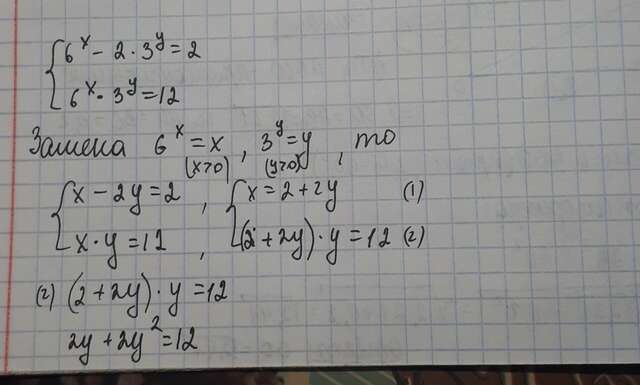 6ˣ - 2 · 3ʸ = 2
6ˣ · 3ʸ = 12
Замена 6ˣ = x, 3ʸ = y, то
(x>0) (y>0)
x - 2y = 2, x = 2 + 2y (1)
x · y = 12, (2 + 2y) · y = 12 (2)
(2) (2 + 2y) · y = 12
2y + 2y² = 12